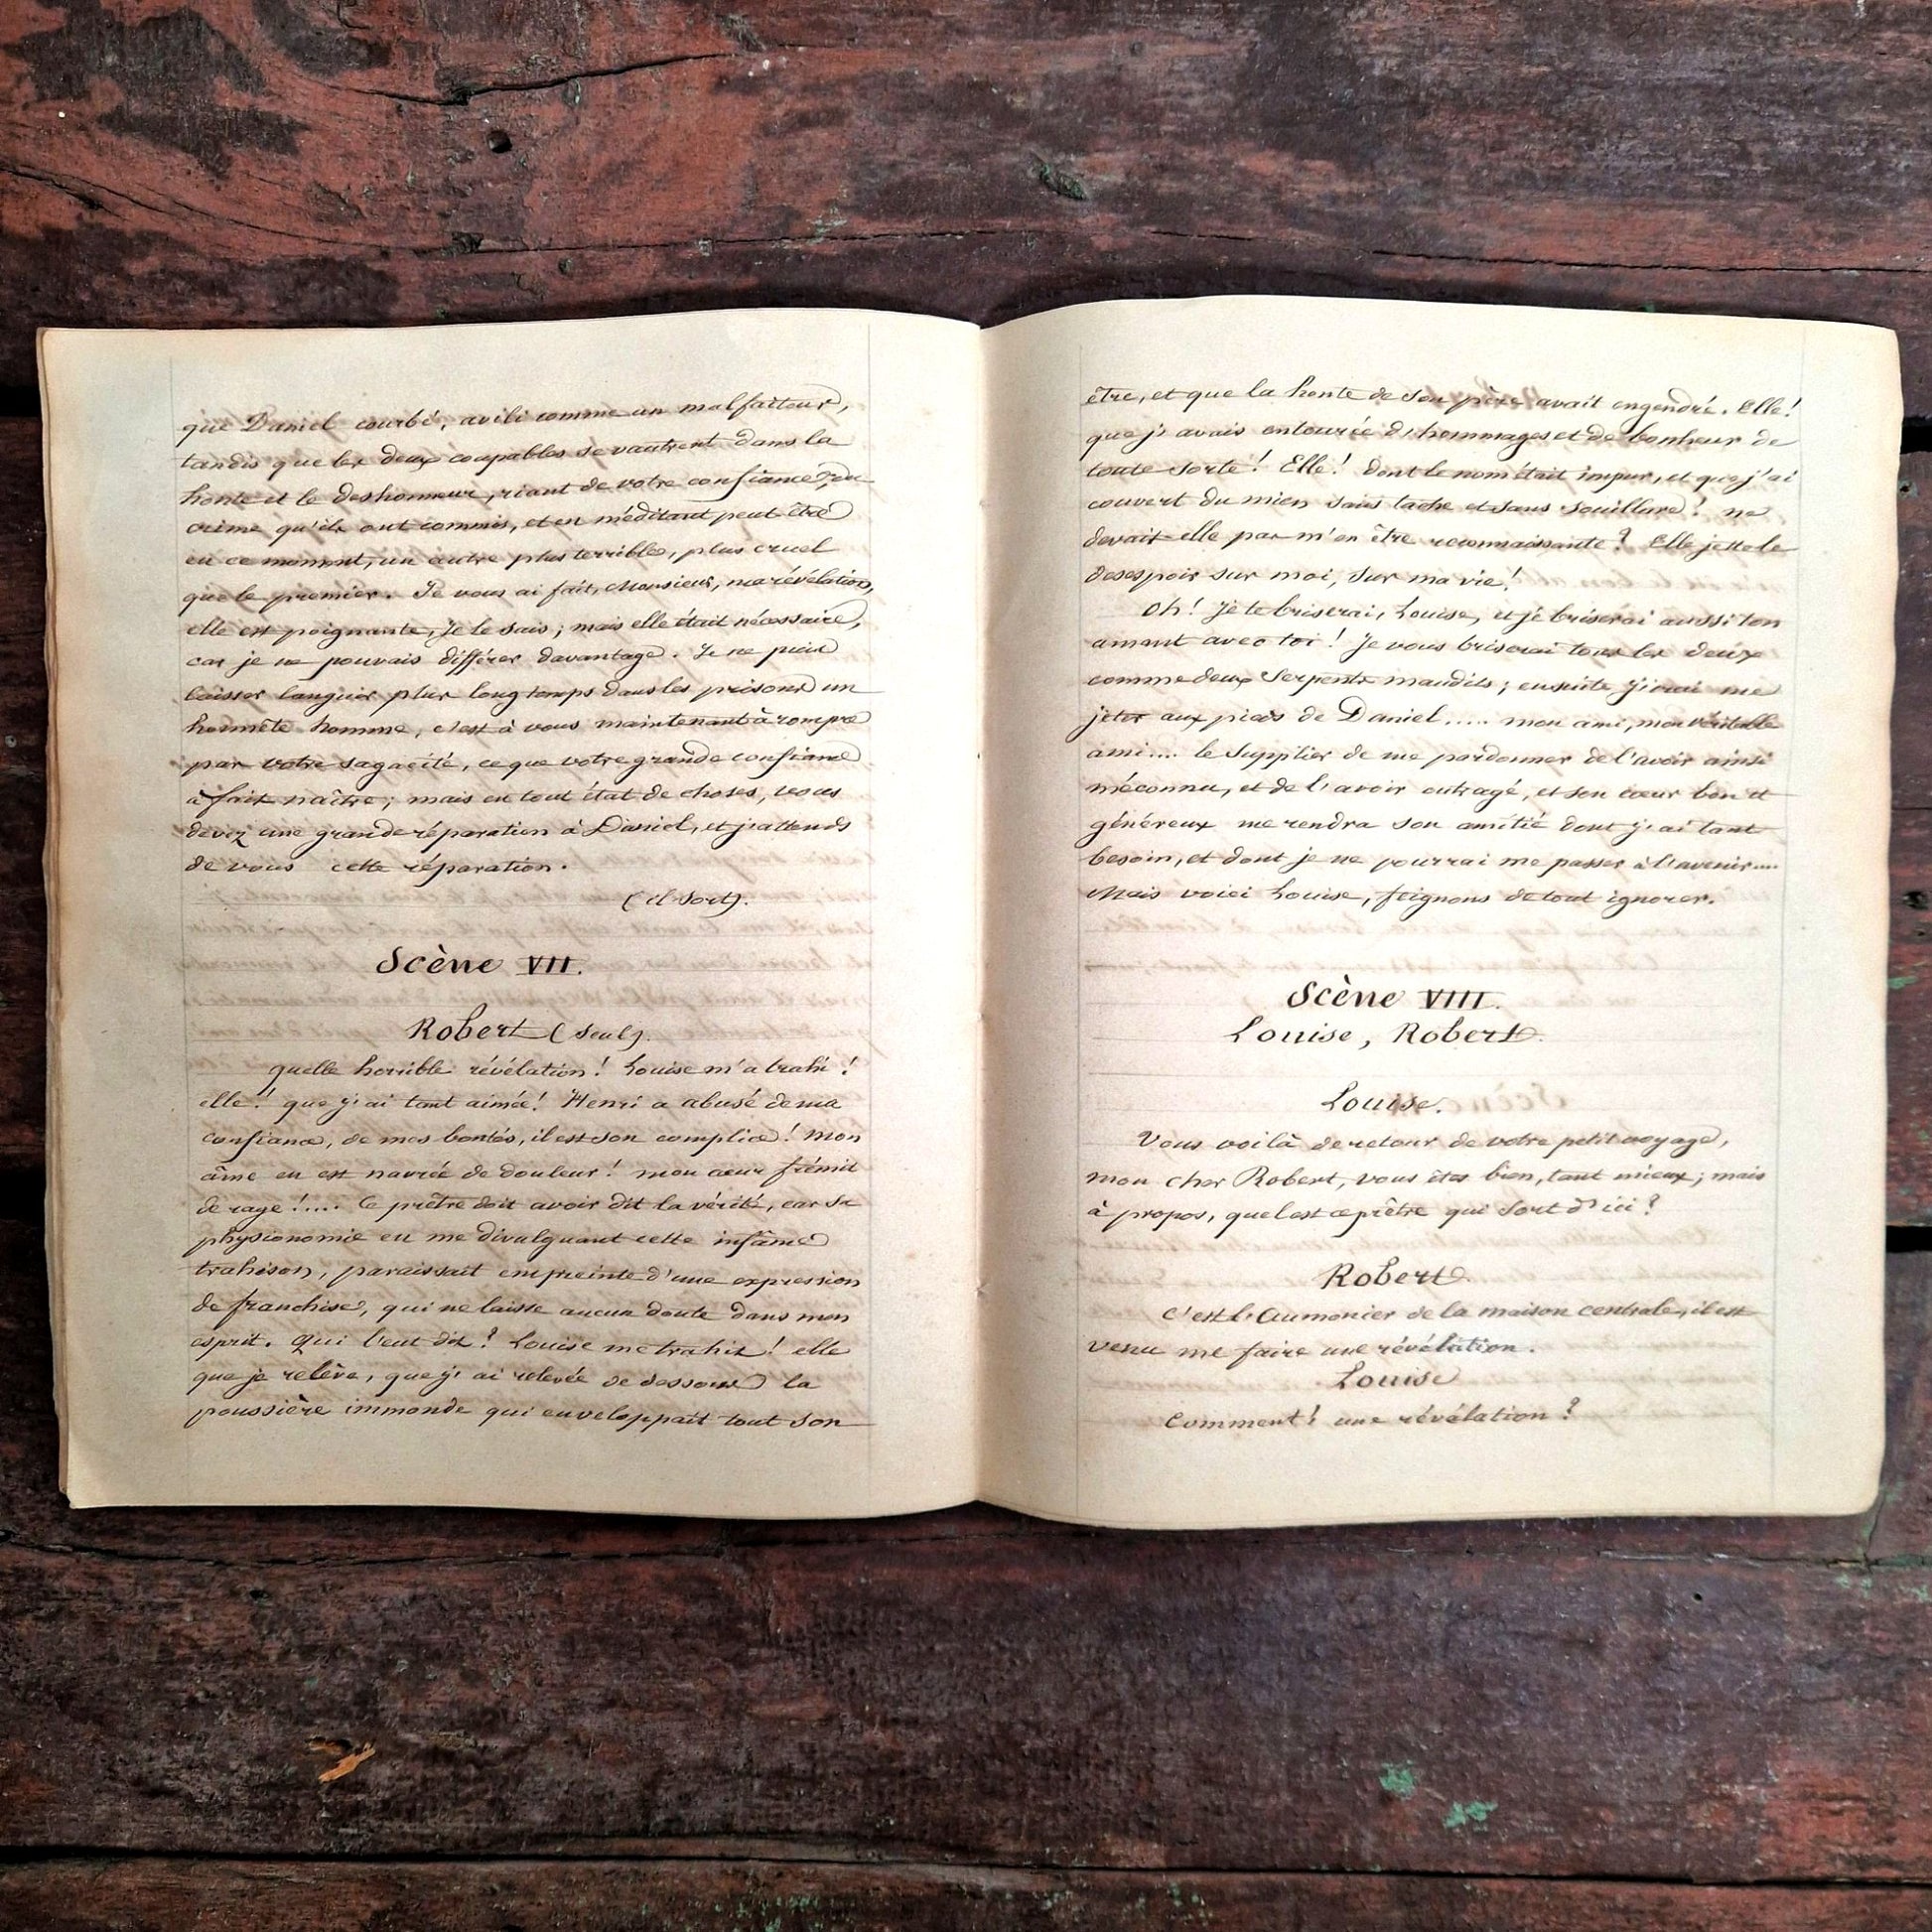 que Daniel courbé, avili comme un malfaiteur,
tandis que les deux coupables se vautrent dans la
honte et le deshonneur, riant de votre confiance, du
crime qu'ils ont commis, et en méditant peut être
en ce moment, un autre plus terrible, plus cruel
que le premier. Je vous ai fait, Monsieur, ma révélation,
elle est poignante, je le sais ; mais elle était nécessaire,
car je ne pouvais différer davantage. Je ne puis
laisser languir plus long temps dans les prisons un
honnête homme, c'est à vous maintenant à rompre
par votre sagacité, ce que votre grande confiance
a fait naître ; mais en tout état de choses, vous
devez une grande réparation à Daniel, et j'attends
de vous cette réparation.
(il sort).
Scène VII.
Robert (seul).
quelle horrible révélation ! Louise m'a trahi !
elle ! que j'ai tant aimée ! Henri a abusé de ma
confiance, de mes bontés, il est son complice ! mon
âme en est navrée de douleur ! mon cœur frémit
de rage !.... Ce prêtre doit avoir dit la vérité, car sa
physionomie en me divulguant cette infâme
trahison, paraissait empreinte d'une expression
de franchise, qui ne laisse aucun doute dans mon
esprit. Qui l'eut dit ? Louise me trahit ! elle
que je relève, que j'ai relevée de dessous la
poussière immonde qui enveloppait tout son
être, et que la honte de son père avait engendré. Elle !
que j'avais entourée d'hommages et de bonheur de
toute sorte ! Elle ! dont le nom était impur, et que j'ai
couvert du mien sans tache et sans souillure ! ne
devait-elle pas m'en être reconnaissante ? Elle jette le
desespoir sur moi, sur ma vie !
Oh ! je te briserai, Louise, et je briserai aussi ton
amant avec toi ! Je vous briserai tous les deux
comme deux serpents maudits ; ensuite j'irai me
jeter aux pieds de Daniel ..... mon ami, mon véritable
ami .... le supplier de me pardonner de l'avoir ainsi
méconnu, et de l'avoir outragé, et son cœur bon et
généreux me rendra son amitié dont j'ai tant
besoin, et dont je ne pourrai me passer à l'avenir....
Mais voici Louise, feignons de tout ignorer.
Scène VIII.
Louise, Robert.
Louise.
Vous voilà de retour de votre petit voyage,
mon cher Robert, vous êtes bien, tant mieux ; mais
à propos, quel est ce prêtre qui sort d'ici ?
Robert.
C'est l'Aumonier de la maison centrale, il est
venu me faire une révélation.
Louise
Comment ! une révélation ?